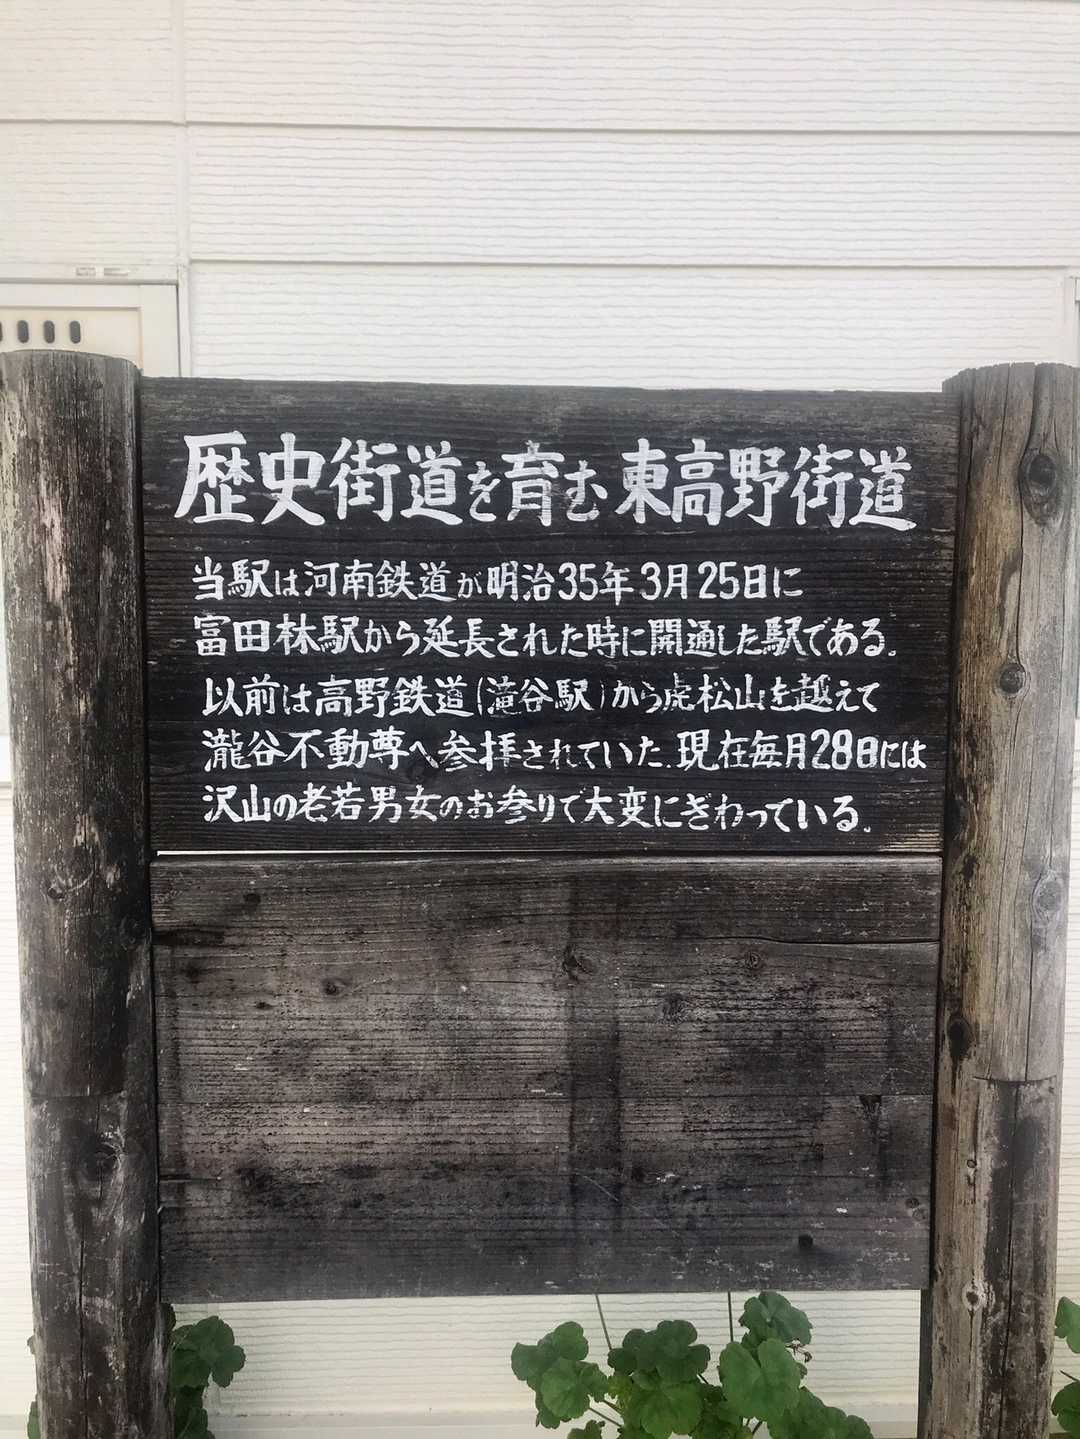 歴史街道を育む東高野街道
当駅は河南鉄道が明治35年3月25日に
富田林駅から延長された時に開通した駅である。
以前は高野鉄道(滝谷駅)から虎松山を越えて
瀧谷不動尊へ参拝されていた.現在毎月28日には
沢山の老若男女のお参りで大変にぎわっている。